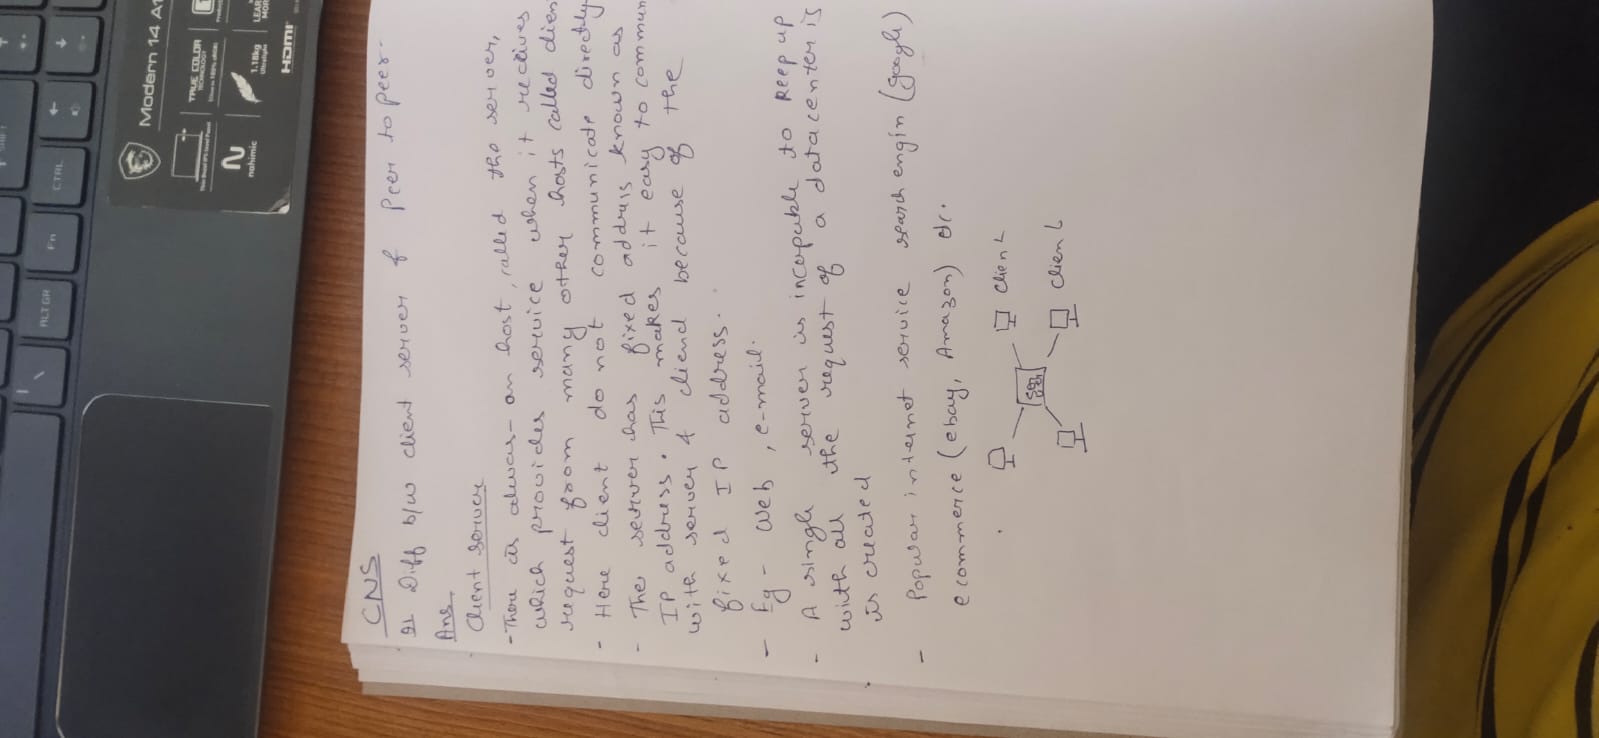 \
ALT GR
Fn
CTRL
Modern 14 A1
TRUE COLOR
TECHNOLOGY
nahimic
1.18kg
Ultralight
LEAR
MOR
HDMI
CNS
Diff b/w client server & Peer to peer-
Ans
Client Server
- There is alwas - an host, called the server,
which provides service when it recives
request from many other hosts called clien
- Here client do not communicate directly
- The server has fixed address known as
IP address. This makes it easy to commun
with server & cliend because of the
fixed IP address.
- Eg - Web, e-mail.
- A single server is incapable to keep up
with all the request of a datacenter is
is created
- Popular internet service search engin (google)
ecommerce (ebay, Amazon) etc.
Client
Server
Client